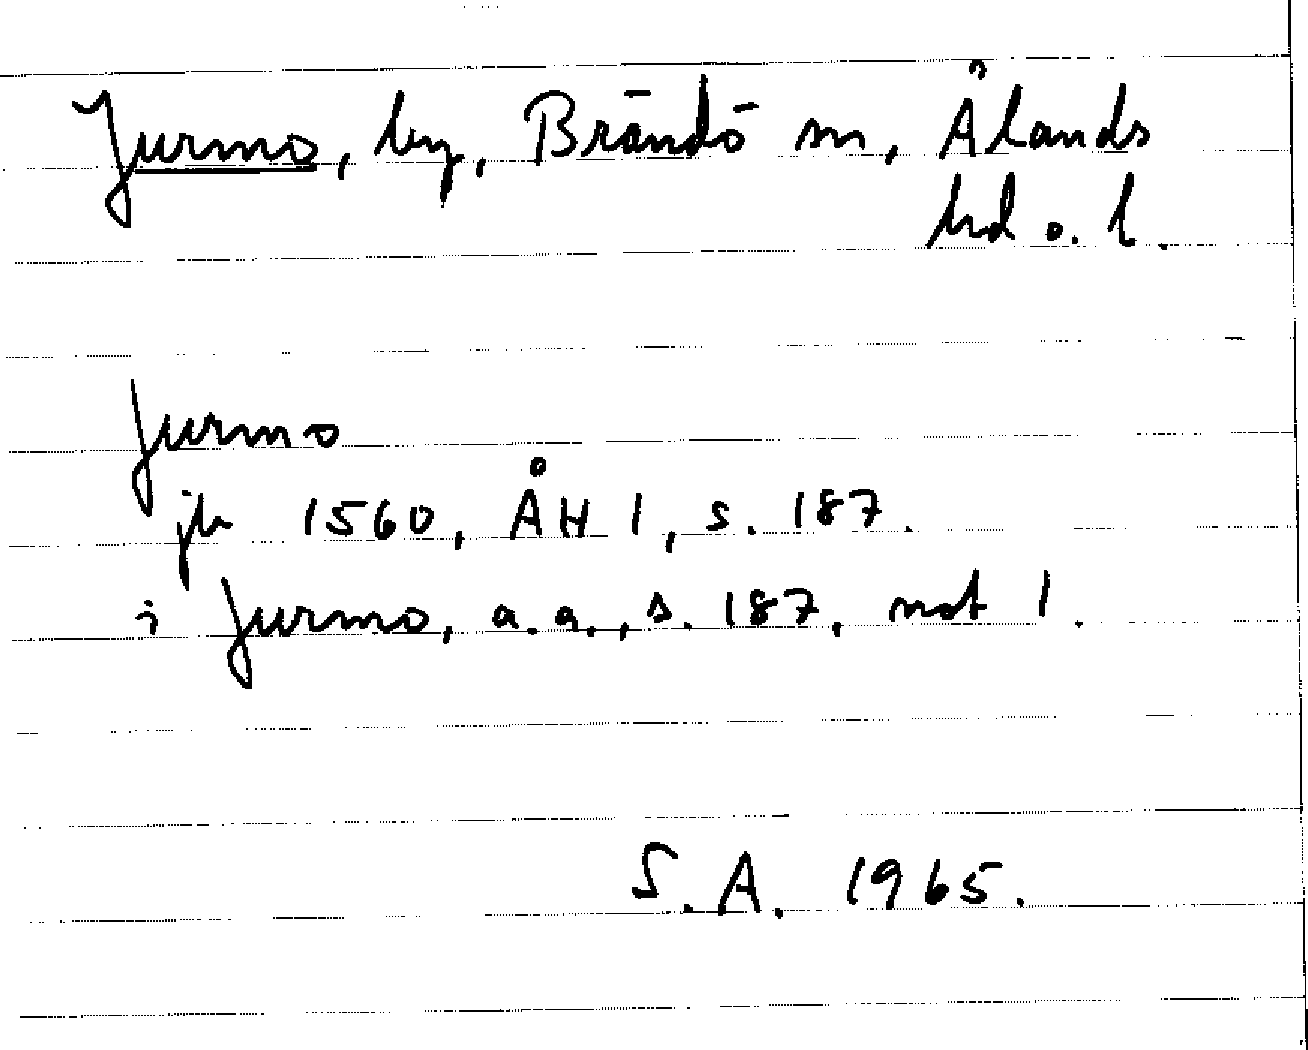 Jurmo, by, Brändö sn, Ålands
hd o. l.
Jurmo
jb 1560, ÅH 1, s. 187.
i Jurmo, a.a., s. 187, not 1.
S.A. 1965.